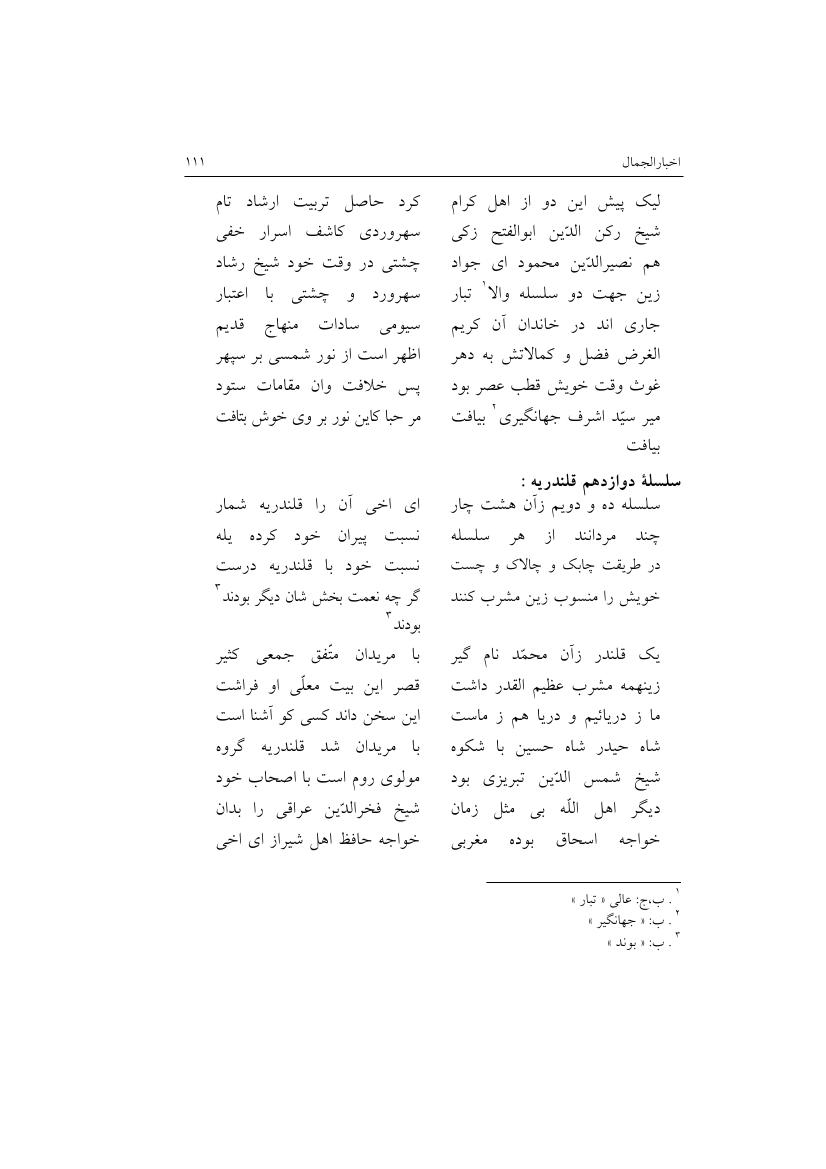 اخبارالجمال ۱۱۱
لیک پیش این دو از اهل کرام کرد حاصل تربیت ارشاد تام
شیخ رکن الدّین ابوالفتح زکی سهروردی کاشف اسرار خفی
هم نصیرالدّین محمود ای جواد چشتی در وقت خود شیخ رشاد
زین جهت دو سلسله والا۱ تبار سهرورد و چشتی با اعتبار
جاری اند در خاندان آن کریم سیومی سادات منهاج قدیم
الغرض فضل و کمالاتش به دهر اظهر است از نور شمسی بر سپهر
غوث وقت خویش قطب عصر بود پس خلافت وان مقامات ستود
میر سیّد اشرف جهانگیری۲ بیافت مر حبا کاین نور بر وی خوش بتافت
بیافت
سلسلۀ دوازدهم قلندریه :
سلسله ده و دویم زآن هشت چار ای اخی آن را قلندریه شمار
چند مردانند از هر سلسله نسبت پیران خود کرده یله
در طریقت چابک و چالاک و چست نسبت خود با قلندریه درست
خویش را منسوب زین مشرب کنند گر چه نعمت بخش شان دیگر بودند۳
بودند۳
یک قلندر زآن محمّد نام گیر با مریدان متّفق جمعی کثیر
زینهمه مشرب عظیم القدر داشت قصر این بیت معلّی او فراشت
ما ز دریائیم و دریا هم ز ماست این سخن داند کسی کو آشنا است
شاه حیدر شاه حسین با شکوه با مریدان شد قلندریه گروه
شیخ شمس الدّین تبریزی بود مولوی روم است با اصحاب خود
دیگر اهل اللّه بی مثل زمان شیخ فخرالدّین عراقی را بدان
خواجه اسحاق بوده مغربی خواجه حافظ اهل شیراز ای اخی
۱ . ب،ج: عالی « تبار »
۲ . ب: « جهانگیر »
۳ . ب: « بوند »